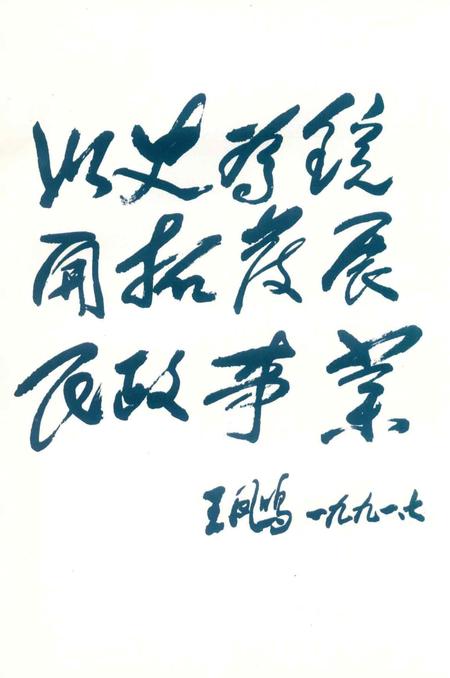 以史为镜
开拓发展
民政事業
王凤鸣 一九九一、七